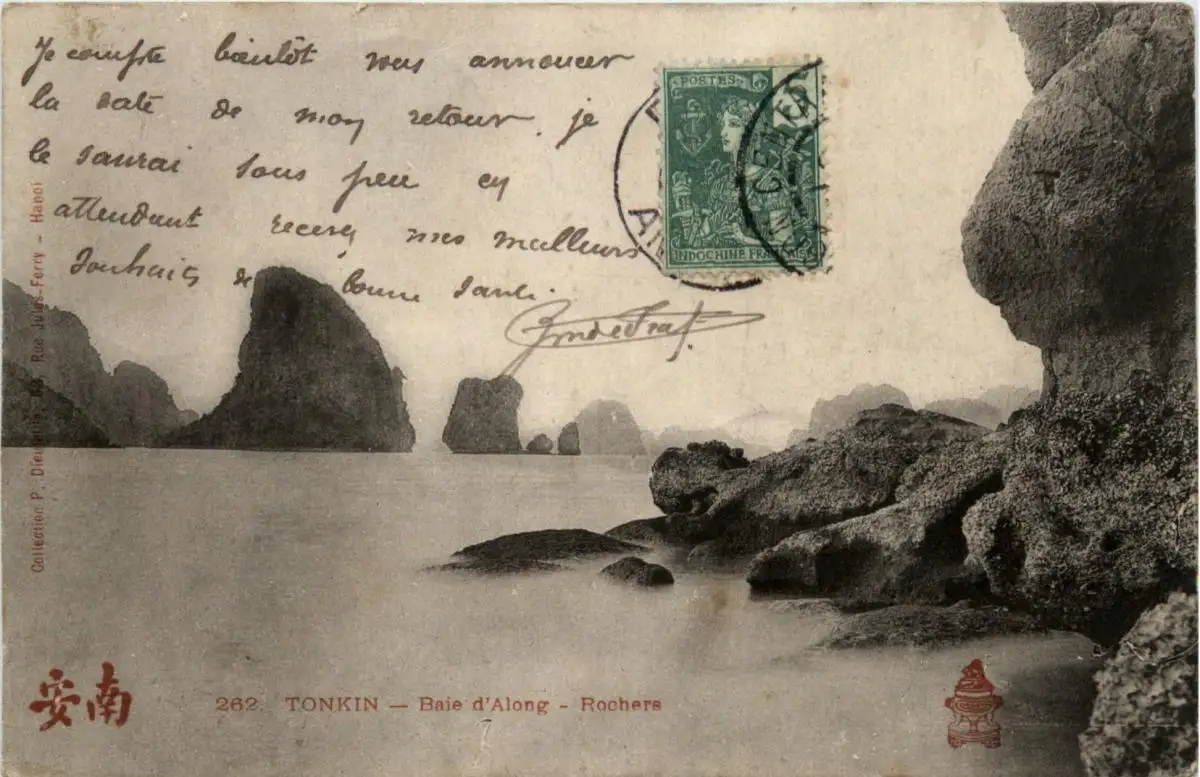 Je compte bientôt vous annoncer
la date de mon retour, je
le saurai sous peu en
attendant recevez mes meilleurs
souhaits de bonne santé.
POSTES
INDOCHINE FRANÇAISE
Collection P. Dieulefils, 53 Rue Jules-Ferry - Hanoi
安南
262. TONKIN — Baie d'Along - Rochers